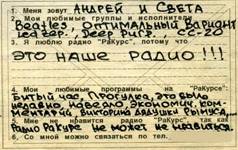 1. Меня зовут АНДРЕЙ И СВЕТА
2. Мои любимые группы и исполнители
Beatles, ОПТИМАЛЬНЫЙ ВАРИАНТ
Led Zep., Deep Purp., СС-20
3. Я люблю радио "Ракурс", потому что
ЭТО НАШЕ РАДИО!!!
4. Мои любимые программы "Ракурса":
ПЯТЫЙ ЧАС, ПРОГУЛКА, ЭТО БЫЛО
НЕДАВНО, НАВЕЯЛО, ЭКОНОМИЧ. КОМ-
МЕНТАРИЙ ВИКТОРИНА ДЯДЮШКИ
5. Мне не нравится радио "Ракурс" так как
РАДИО РАКУРС НЕ МОЖЕТ НЕ НРАВИТЬСЯ.
6. Со мной можно связаться по тел.